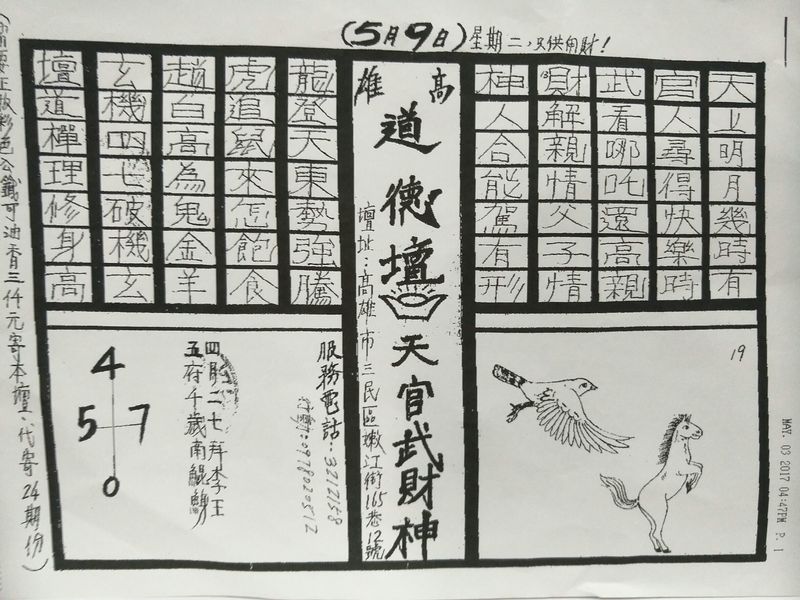 (5月9日)星期二，只供角財！
天上明月幾時有
官人尋得快樂時
武看哪吒還高親
財解親情父子情
神人合能駕有形
高雄
道德壇
天官武財神
壇址：高雄市三民區嫩江街165巷12號
龍登天東勢強騰
虎追鼠來怎飽食
趙白高為鬼金羊
玄機四七破機玄
壇道禪理修身高
19
服務電話：3212158
四月二七拜李王
五府千歲南鯤鯓
4
5 7
0
正版彩色公籤可油香三仟元寄本壇、代寄24期份)
MAY. 03 2017 04:47PM P. 1